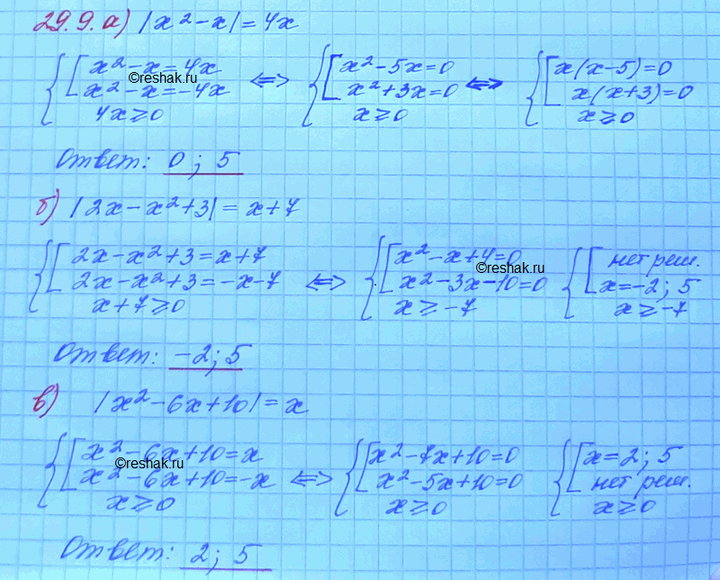 29.9. а) |x² − x| = 4x
{[x² − x = 4x
x² − x = −4x
4x ≥ 0 ⟺ {[x² − 5x = 0
x² + 3x = 0
x ≥ 0 ⟺ {[x(x − 5) = 0
x(x + 3) = 0
x ≥ 0
©reshak.ru
Ответ: 0; 5
б) |2x − x² + 3| = x + 7
{[2x − x² + 3 = x + 7
2x − x² + 3 = −x − 7
x + 7 ≥ 0 ⟺ {[x² − x + 4 = 0
x² − 3x − 10 = 0
x ≥ −7 {[нет реш.
x = −2; 5
x ≥ −7
©reshak.ru
Ответ: −2; 5
в) |x² − 6x + 10| = x
{[x² − 6x + 10 = x
x² − 6x + 10 = −x
x ≥ 0 ⟺ {[x² − 7x + 10 = 0
x² − 5x + 10 = 0
x ≥ 0 {[x = 2; 5
нет реш.
x ≥ 0
©reshak.ru
Ответ: 2; 5
©reshak.ru